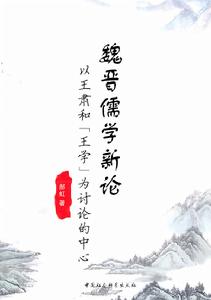 魏晋儒学新论
以王肃和「王学」为讨论的中心
郝虹 著
中国社会科学出版社